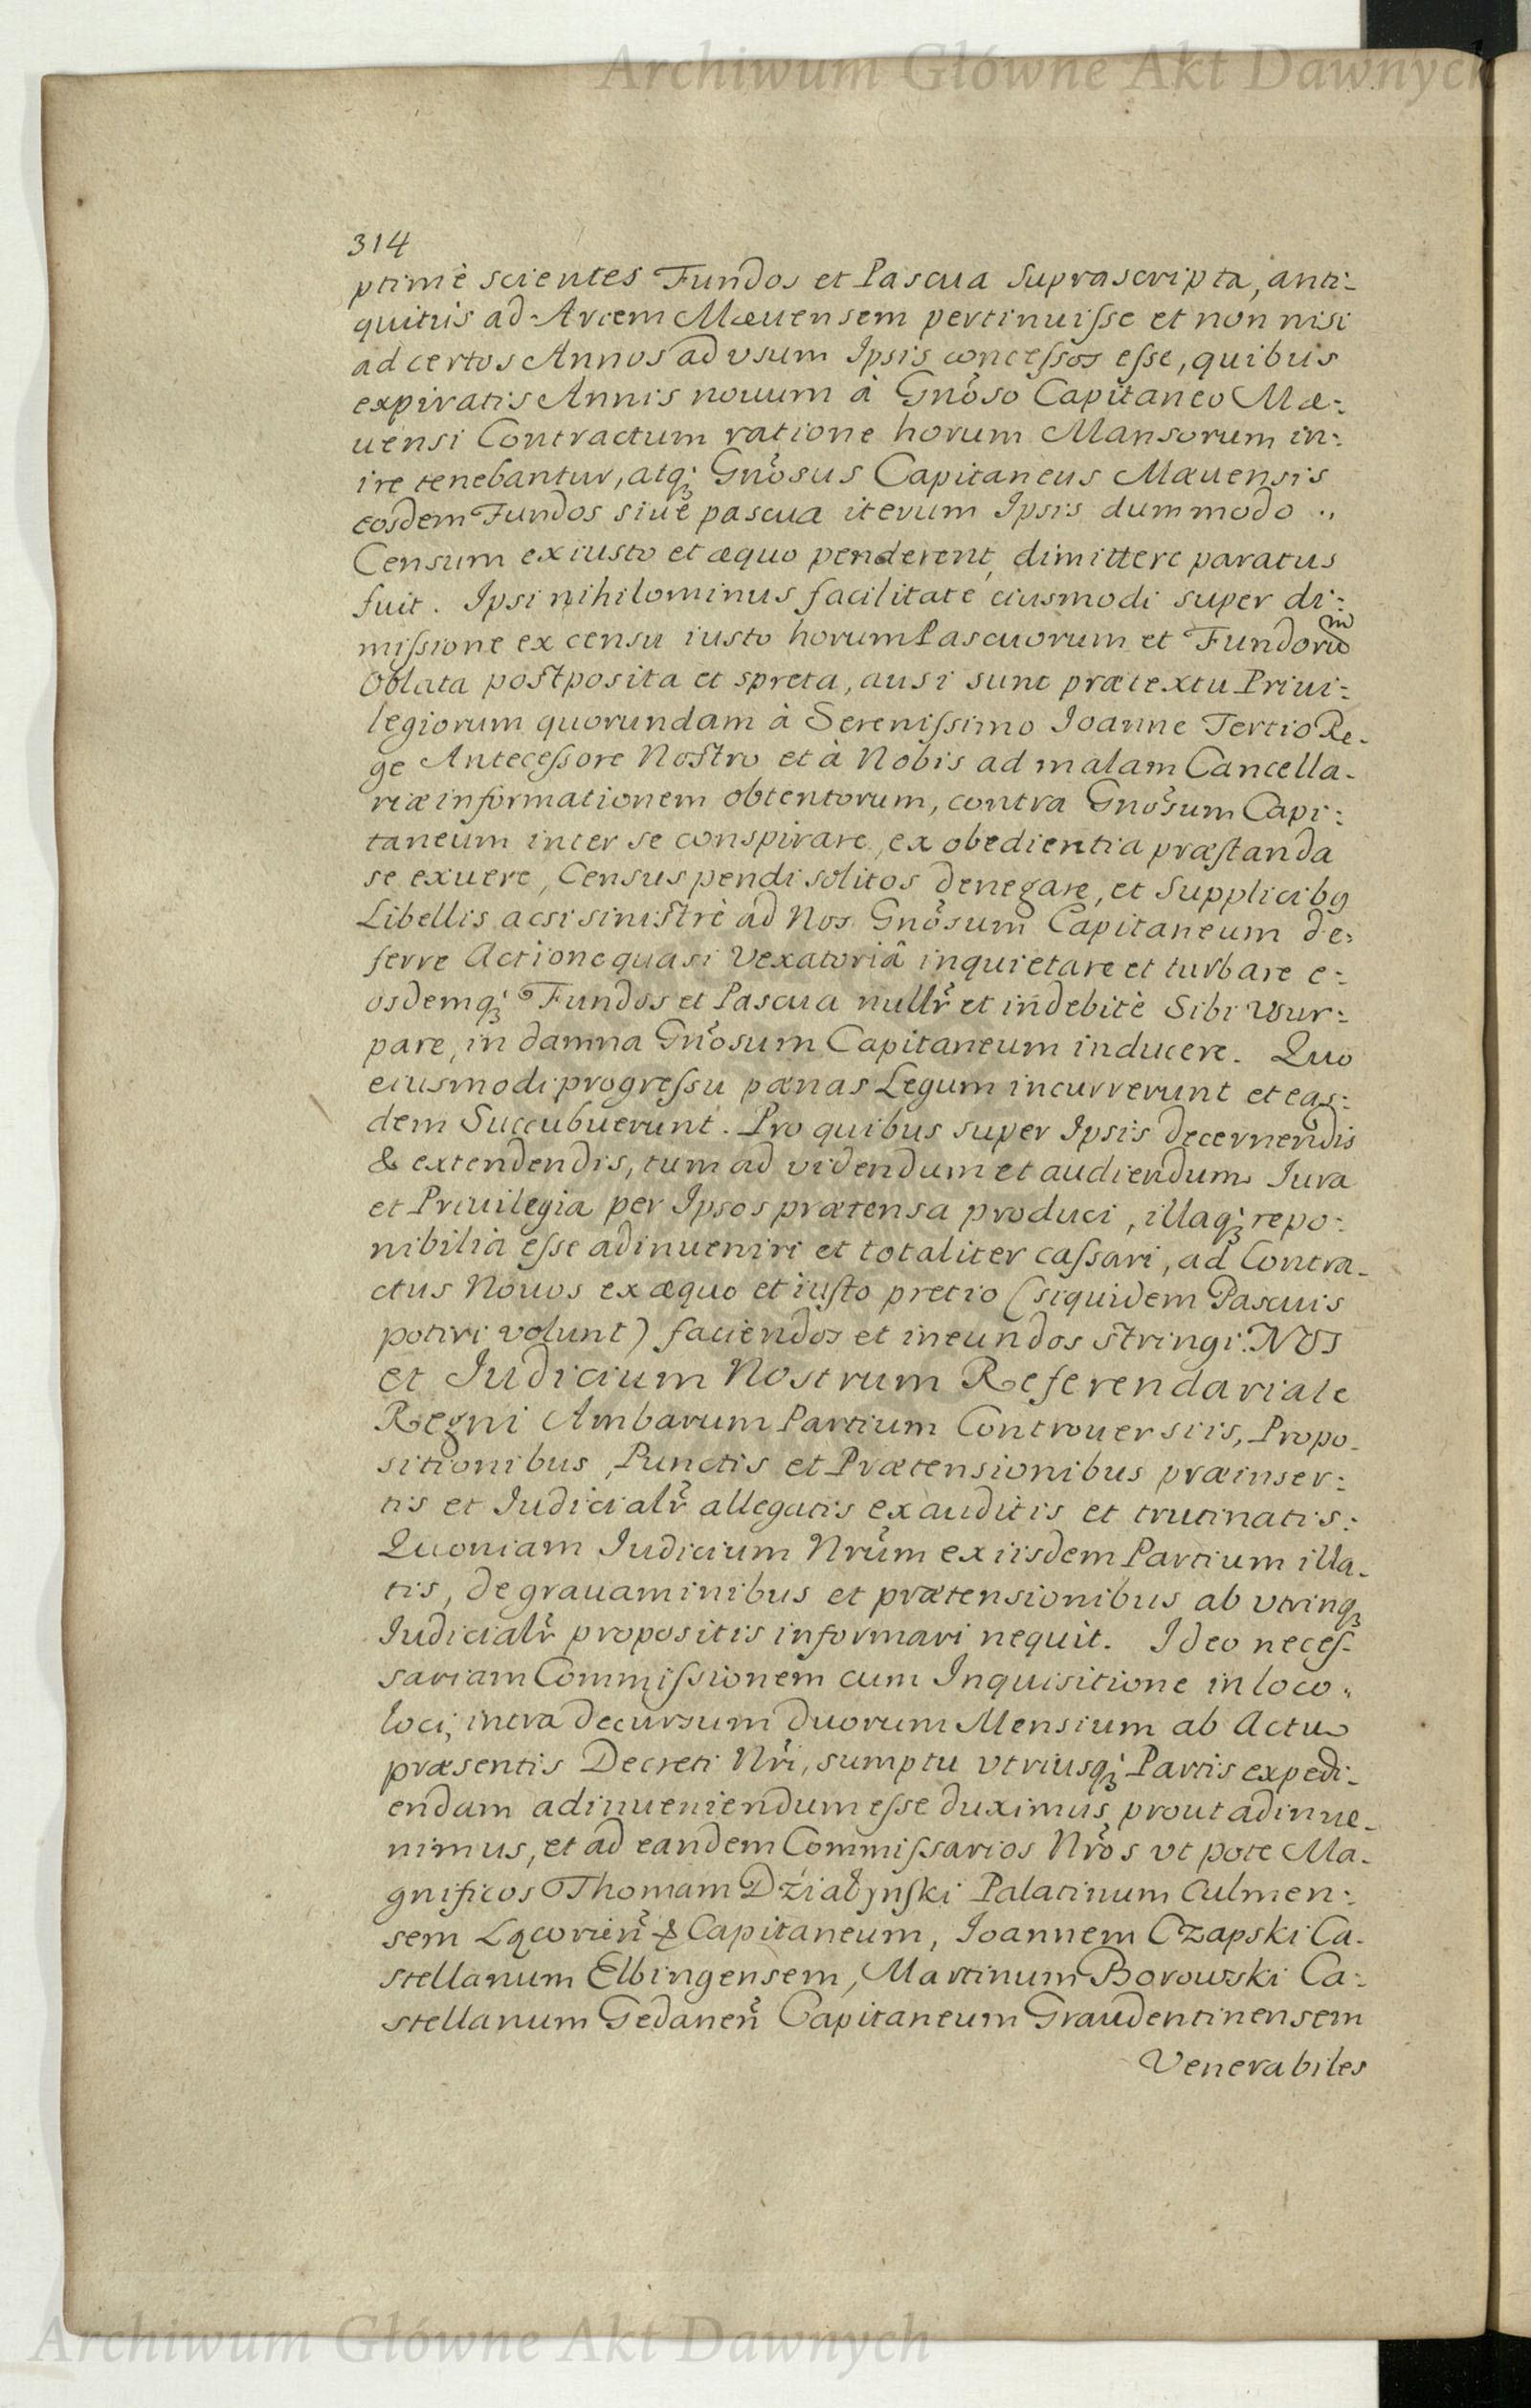 Archiwum Główne Akt Dawnych
314
ptimè scientes Fundos et Pascua Suprascripta, anti-
quitùs ad Arcem Mæuensem pertinuisse et non nisi
ad certos Annos ad vsum Ipsis concessos esse, quibus
expiratis Annis nouum à Gnoso Capitaneo Mæ-:
uensi Contractum ratione horum Mansorum in-:
ire tenebantur, atq; Gnosus Capitaneus Mæuensis
eosdem Fundos siuè pascua iterum Ipsis dummodo .,
Censum ex iusto et æquo penderent, dimittere paratus
fuit. Ipsi nihilominus facilitate eiusmodi super di-:
missione ex censu iusto horum Pascuorum et Fundorum
Oblata postposita et spreta, ausi sunt prætextu Priui-:
legiorum quorundam à Serenissimo Ioanne Tertio Re-
ge Antecessore Nostro et à Nobis ad malam Cancella-
riæ informationem obtentorum, contra Gnosum Capi-:
taneum inter se conspirare, ex obedientia præstanda
se exuere, Census pendi solitos denegare, et Supplicibg
Libellis acsi sinistrè ad Nos Gnosum Capitaneum de-:
ferre Actione quasi Vexatoriâ inquietare et turbare e-:
osdemq; Fundos et Pascua nullr et indebitè Sibi vsur-:
pare, in damna Gnosum Capitaneum inducere. Quo
eiusmodi progressu pænas Legum incurrerunt et eas-:
dem Succubuerunt. Pro quibus super Ipsis decernendis
& extendendis, tum ad videndum et audiendum Iura
et Priuilegia per Ipsos prætensa produci, illaq; repo-:
nibilia esse adinueniri et totaliter cassari, ad Contra-
ctus Nouos ex æquo et iusto pretio (siquidem Pascuis
potiri volunt) faciendos et ineundos stringi. NOS
et Iudicium Nostrum Referendariale
Regni Ambarum Partium Controuersiis, Propo-
sitionibus, Punctis et Prætensionibus præinser-:
tis et Iudicialr allegatis exauditis et trutinatis:
Quoniam Iudicium Nrum ex iisdem Partium illa-
tis, de grauaminibus et prætensionibus ab vtrinq;
Iudicialr propositis informari nequit. Ideo neces-
sariam Commissionem cum Inquisitione in loco
loci, intra decursum duorum Mensium ab Actu
præsentis Decreti Nri, sumptu vtriusq; Partis expedi-
endam adinueniendum esse duximus, prout adinue-
nimus, et ad eandem Commissarios Nros vt pote Ma-
gnificos Thomam Działyński Palatinum Culmen-:
sem & Capitaneum, Ioannem Czapski Ca-
stellanum Elbingensem, Martinum Borowski Ca-:
stellanum Gedanen Capitaneum Graudentinensem
Venerabiles
Archiwum Główne Akt Dawnych